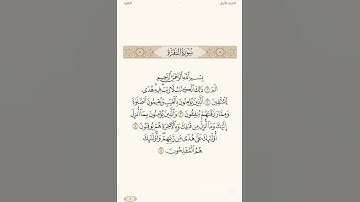 سُورَةُ البَقَرَةِ
بِسْمِ ٱللَّهِ ٱلرَّحْمَٰنِ ٱلرَّحِيمِ
الٓمٓ ١ ذَٰلِكَ ٱلْكِتَٰبُ لَا رَيْبَ ۛ فِيهِ ۛ هُدًى
لِّلْمُتَّقِينَ ٢ ٱلَّذِينَ يُؤْمِنُونَ بِٱلْغَيْبِ وَيُقِيمُونَ ٱلصَّلَوٰةَ
وَمِمَّا رَزَقْنَٰهُمْ يُنفِقُونَ ٣ وَٱلَّذِينَ يُؤْمِنُونَ بِمَآ أُنزِلَ
إِلَيْكَ وَمَآ أُنزِلَ مِن قَبْلِكَ وَبِٱلْأٓخِرَةِ هُمْ يُوقِنُونَ ٤
أُو۟لَٰٓئِكَ عَلَىٰ هُدًى مِّن رَّبِّهِمْ ۖ وَأُو۟لَٰٓئِكَ
هُمُ ٱلْمُفْلِحُونَ ٥